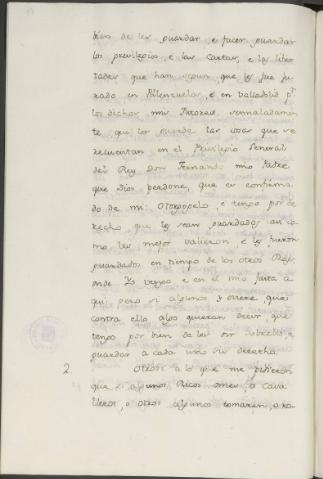 bien de les guardar, e facer guardar
los previlegios, e las cartas, e las liber
tades que han segun que les fue ju
rado en Palenzuela, e en Valladolid pr.
los dichos mis Tutores, sennaladamen
te que los guarde las cosas que se
recuentan en el Privilegio General
del Rey Don Fernando mio Padre
que Dios perdone, que es confirma
do de mi. Otorgogelo, e tengo por de
recho, que les sean guardados asi co
mo les mejor valieron e les fueron
guardados en tiempo de los otros Reyes
onde Yo vengo e en el mio fasta a
qui pero si algunos y oviere que
contra ello algo quieran decir que
tengo por bien de les oir sobrello, e
guardar a cada uno su derecho.
2. Otrosi a lo que me pidieron
que si algunos Ricos omes, o Cava
lleros, o otros algunos tomaren, o ro